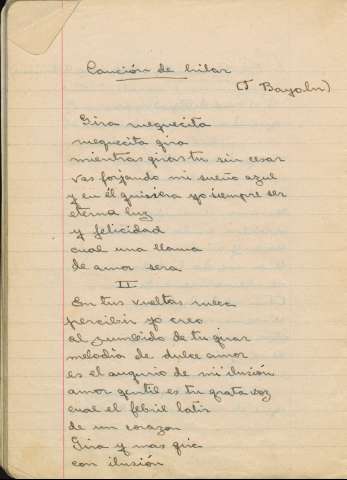 Canción de hilar
(J Bayoln)
Gira ruequecita
ruequecita gira
mientras giras tu sin cesar
vas forjando mi sueño azul
y en él quisiera yo siempre ser
eterna luz
y felicidad
cual una llama
de amor sera
II
En tus vueltas rueca
percibir yo creo
al zumbido de tu girar
melodia de dulce amor
es el augurio de mi ilusión
amor gentil es tu grata voz
cual el febril latir
de un corazon
Gira y mas gire
con ilusión